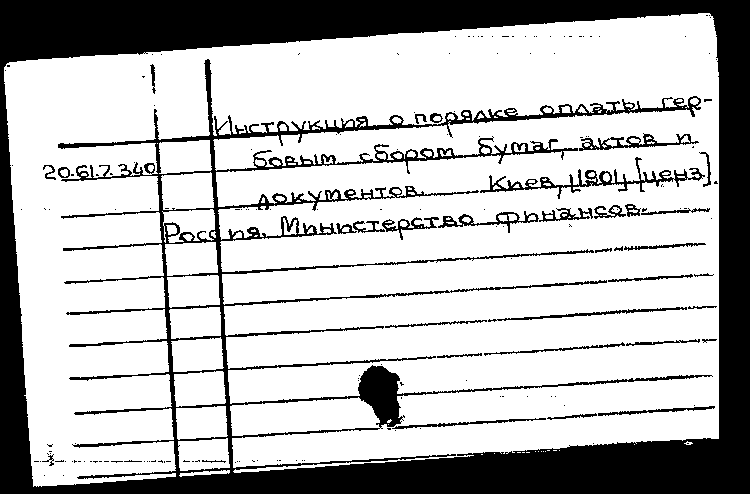 Инструкция о порядке оплаты гер-
бовым сбором бумаг, актов и
20.61.7.340
документов. Киев, 1901, [ценз].
Россия. Министерство финансов.